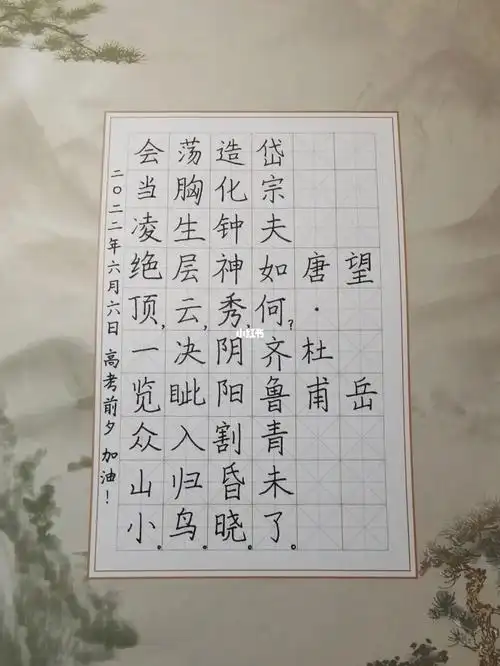 望岳
唐·杜甫
岱宗夫如何?齐鲁青未了。
造化钟神秀,阴阳割昏晓。
荡胸生层云,决眦入归鸟。
会当凌绝顶,一览众山小。
二〇二二年六月六日 高考前夕 加油!
小红书